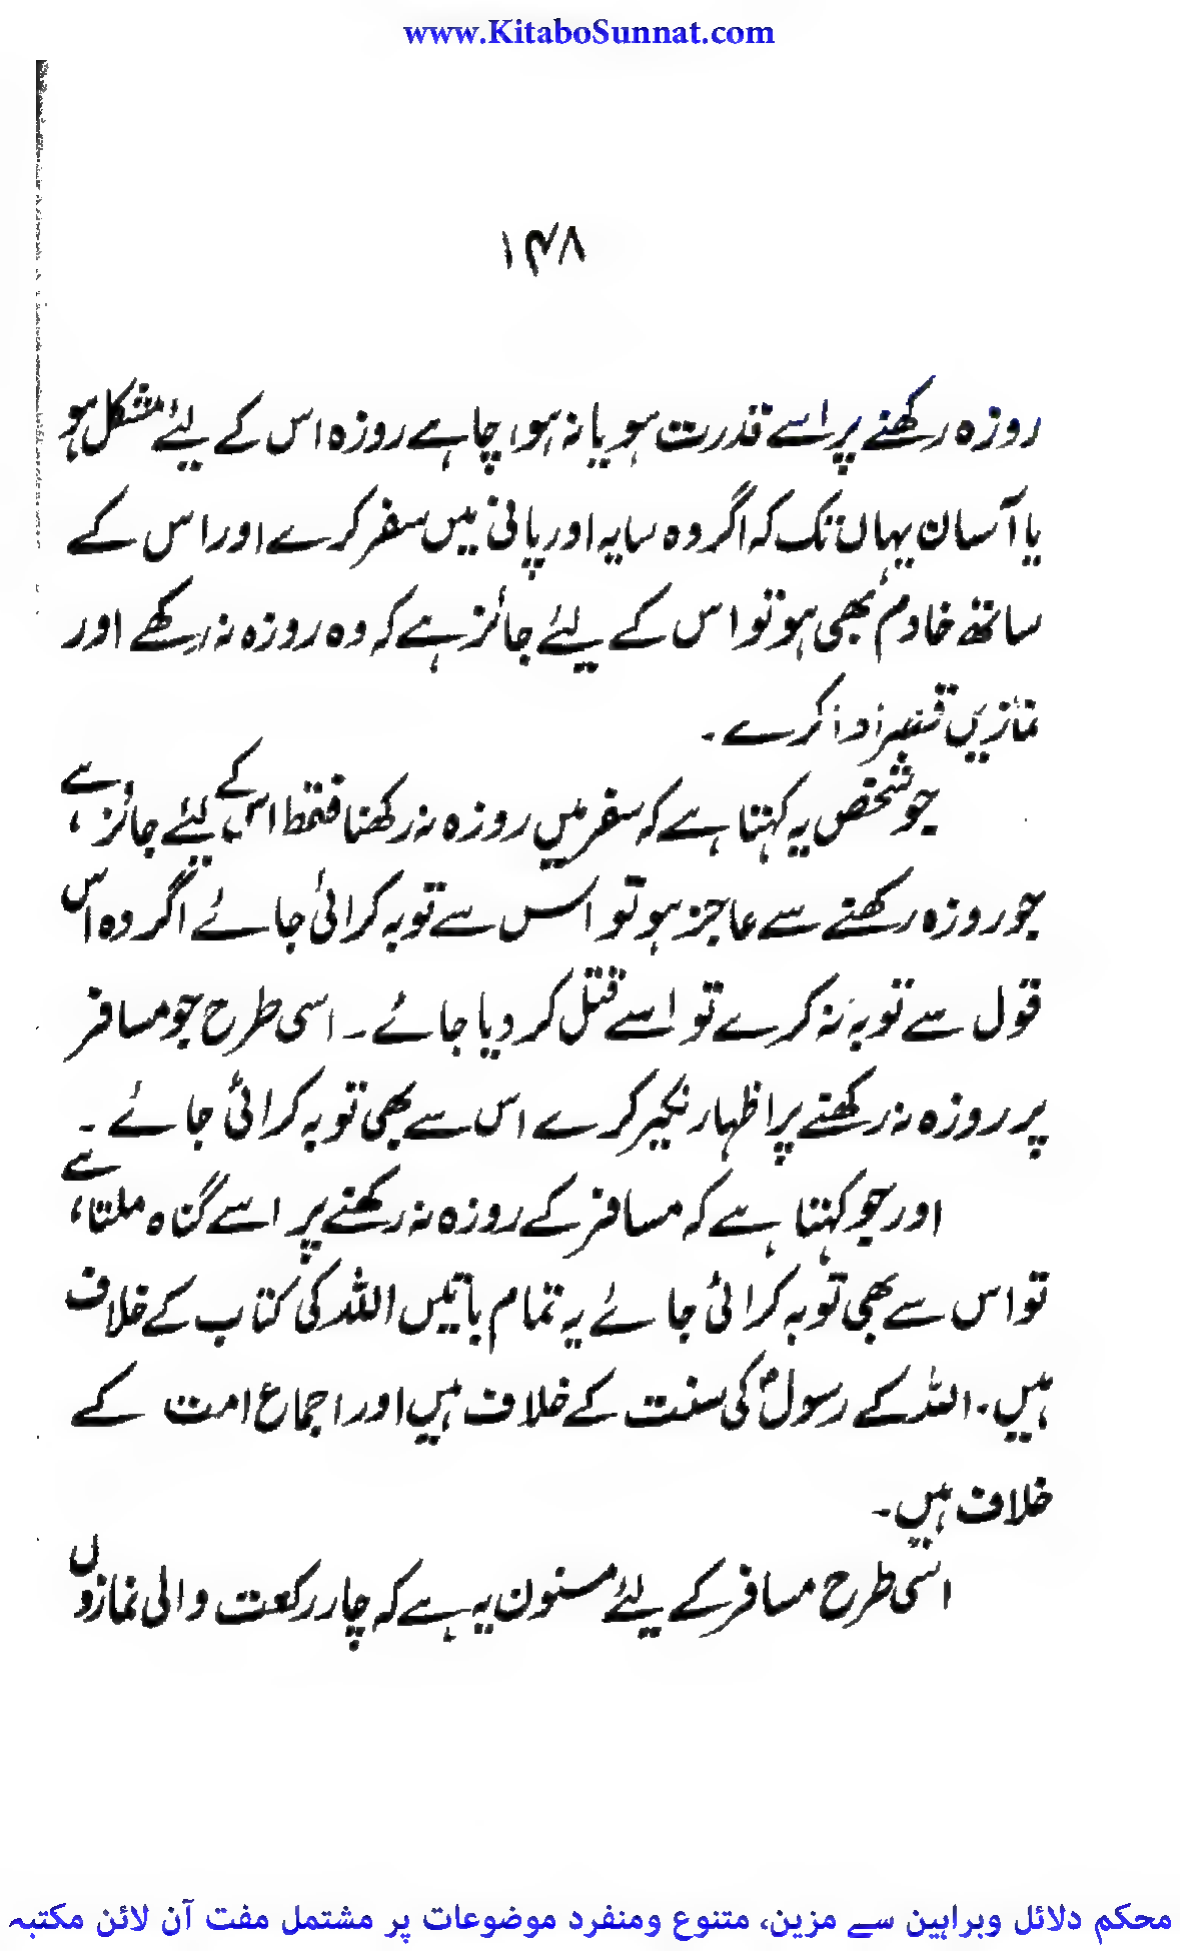 www.KitaboSunnat.com
۱۴۸
روزہ رکھنے پر اسے قدرت ہو یا نہ ہو، چاہے روزہ اس کے لیئے مشکل ہو
یا آسان یہاں تک کہ اگر وہ سایہ اور پانی میں سفر کرے اور اس کے
ساتھ خادم بھی ہو تو اس کے لیئے جائز ہے کہ وہ روزہ نہ رکھے اور
نمازیں قصر ادا کرے ۔
جو شخص یہ کہتا ہے کہ سفر میں روزہ نہ رکھنا فقط اس کے لیئے جائز ہے،
جو روزہ رکھنے سے عاجز ہو تو اس سے توبہ کرائی جائے اگر وہ اس
قول سے توبہ نہ کرے تو اسے قتل کر دیا جائے ۔ اسی طرح جو مسافر
پر روزہ نہ رکھنے پر اظہار نکیر کرے اس سے بھی توبہ کرائی جائے ۔
اور جو کہتا ہے کہ مسافر کے روزہ نہ رکھنے پر اسے گناہ ملتا ہے،
تو اس سے بھی توبہ کرائی جائے یہ تمام باتیں اللہ کی کتاب کے خلاف
ہیں ۔ اللہ کے رسولؐ کی سنت کے خلاف ہیں اور اجماع امت کے
خلاف ہیں ۔
اسی طرح مسافر کے لیئے مسنون یہ ہے کہ چار رکعت والی نمازوں
محکم دلائل وبراہین سے مزین، متنوع ومنفرد موضوعات پر مشتمل مفت آن لائن مکتبہ